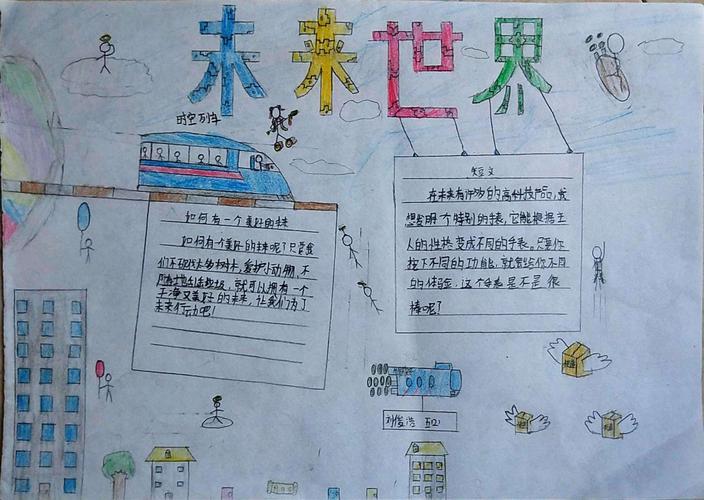 未来世界
时空列车
如何有一个美好的未来
如何有一个美好的未来呢？只要我
们不砍伐太多树木，爱护小动物，不
随地乱丢垃圾，就可以拥有一个
干净又美好的未来，让我们为了
未来行动吧！
短文
在未来有许多的高科技产品，我
想发明一个特别的手表，它能根据主
人的性格变成不同的手表。只要你
按下不同的功能，就会给你不同
的体验，这个手表是不是很
棒呢？
刘俊浩